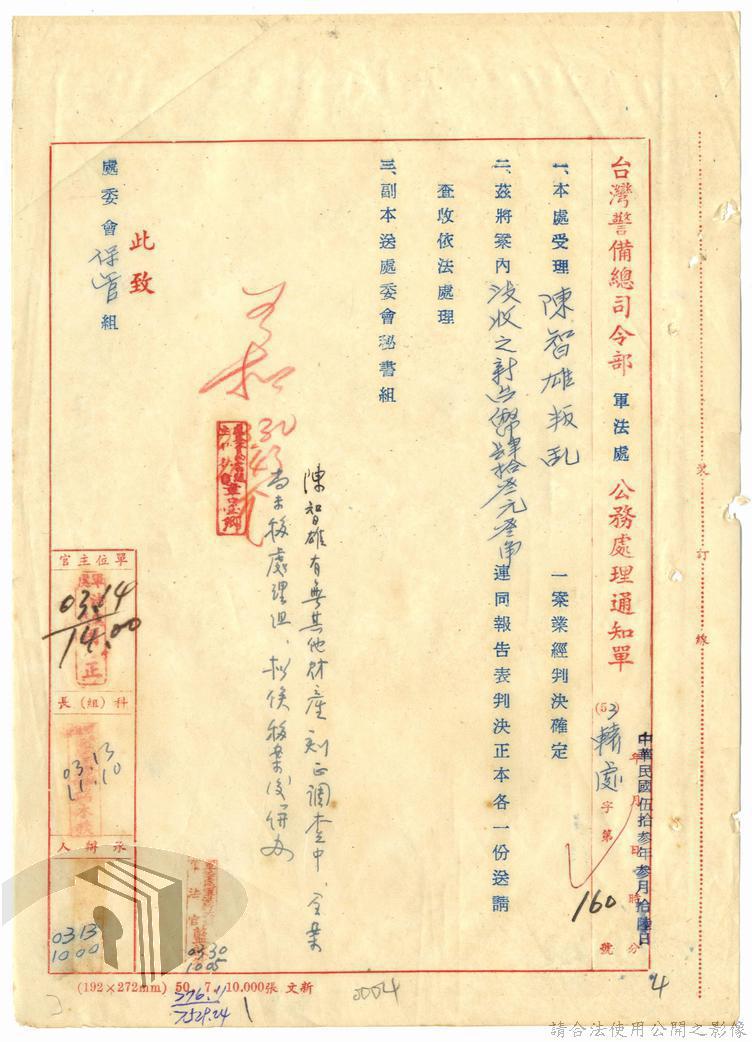 台灣警備總司令部 軍法處 公務處理通知單
中華民國伍拾叁年叁月拾陸日
年 月 日 時 分
(53)
字第160號
一、本處受理 陳智雄叛乱 一案業經判決確定
二、茲將案內 沒收之新台幣肆拾叁元叁角 連同報告表判決正本各一份送請
查收依法處理
三、副本送處委會秘書組
此致
處委會保管組
陳智雄有無其他財產刻正調查中、全案
尚未移處理組、擬俟移案後併办
單位主官
03.14
14.00
科(組)長
03.13
11.10
承辦人
03.13
1000
03.30
1005
(192×272mm) 50.7.10.000張 文新
776.11
7529.24
1
0004
4
裝訂線
請合法使用公開之影像